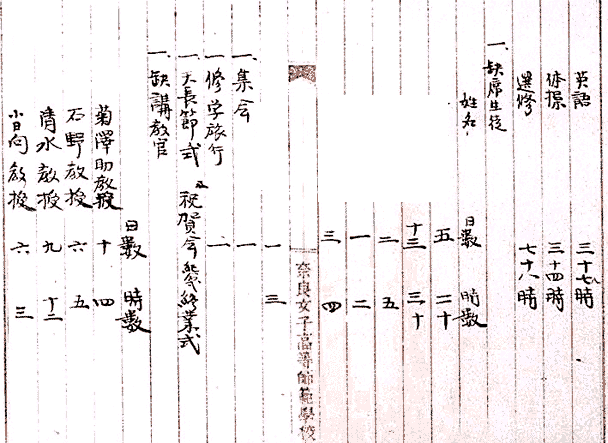 英語 三十七八時
体操 三十四時
選修 七十八時
一、缺席生徒
姓名 日数 時数
五 二十
十三 三十
二 五
一 二
三 四
奈良女子高等師範學校
一、集会 一 三
一、修学旅行 一
一、天長節式及祝賀会 終業式 二
一、缺講教官
日数 時数
菊澤助教授 十 四
石野教授 六 五
清水教授 九 十二
小日向教授 六 三